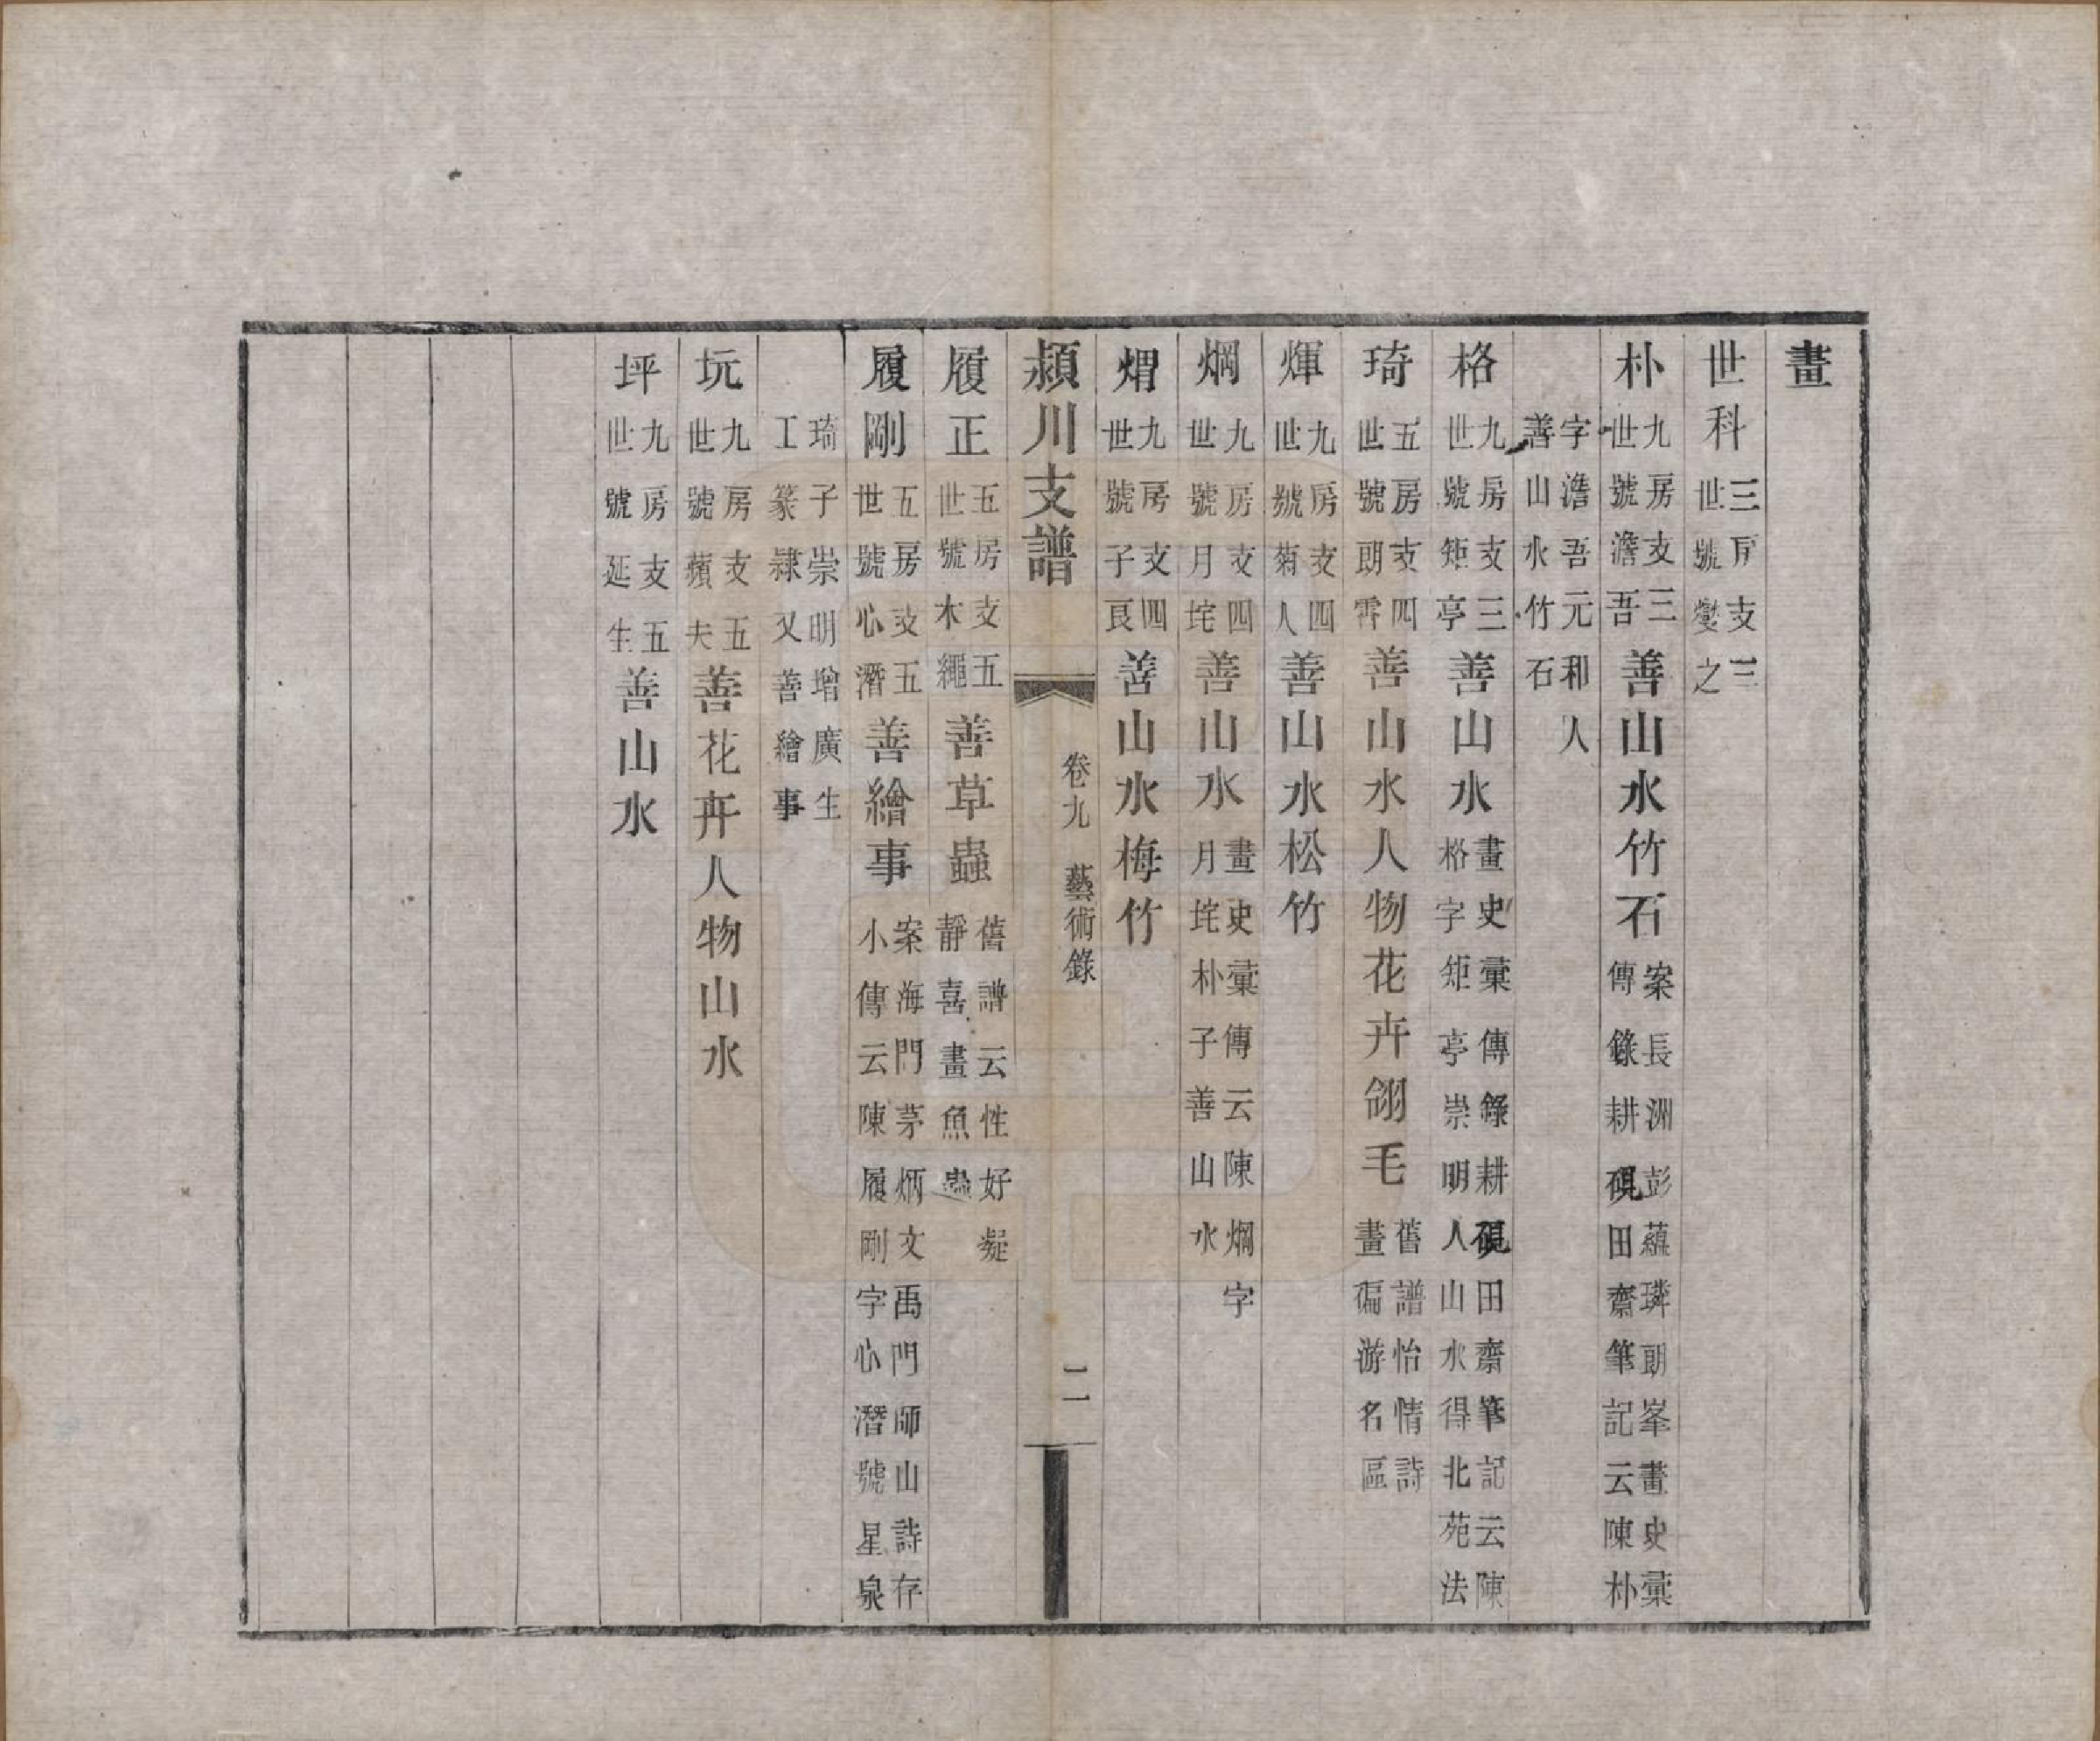 畫
世科三房支三世號燮之
朴九房支三世號澹吾善山水竹石案長洲彭蘊璨朗峯畫史彙傳錄耕硯田齋筆記云陳朴
字澹吾元和人善山水竹石
格九房支三世號矩亭善山水畫史彙傳錄耕硯田齋筆記云陳格字矩亭崇明人山水得北苑法
琦五房支四世號朗霄善山水人物花卉翎毛舊譜怡情詩畫徧游名區
煇九房支四世號菊人善山水松竹
烱九房支四世號月垞善山水畫史彙傳云陳烱字月垞朴子善山水
熠九房支四世號子良善山水梅竹
潁川支譜 卷九 藝術錄 二
履正五房支五世號木繩善草蟲舊譜云性好凝靜喜畫魚蟲
履剛五房支五世號心潛善繪事案海門茅炳文禹門師山詩存小傳云陳履剛字心潛號星泉
琦子崇明增廣生工篆隸又善繪事
玩九房支五世號蘋夫善花卉人物山水
坪九房支五世號延生善山水